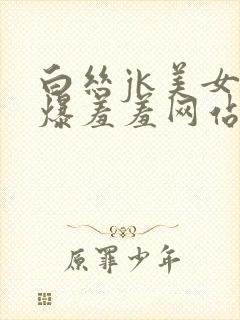 白丝jk美女
爆羞羞网站
原罪少年